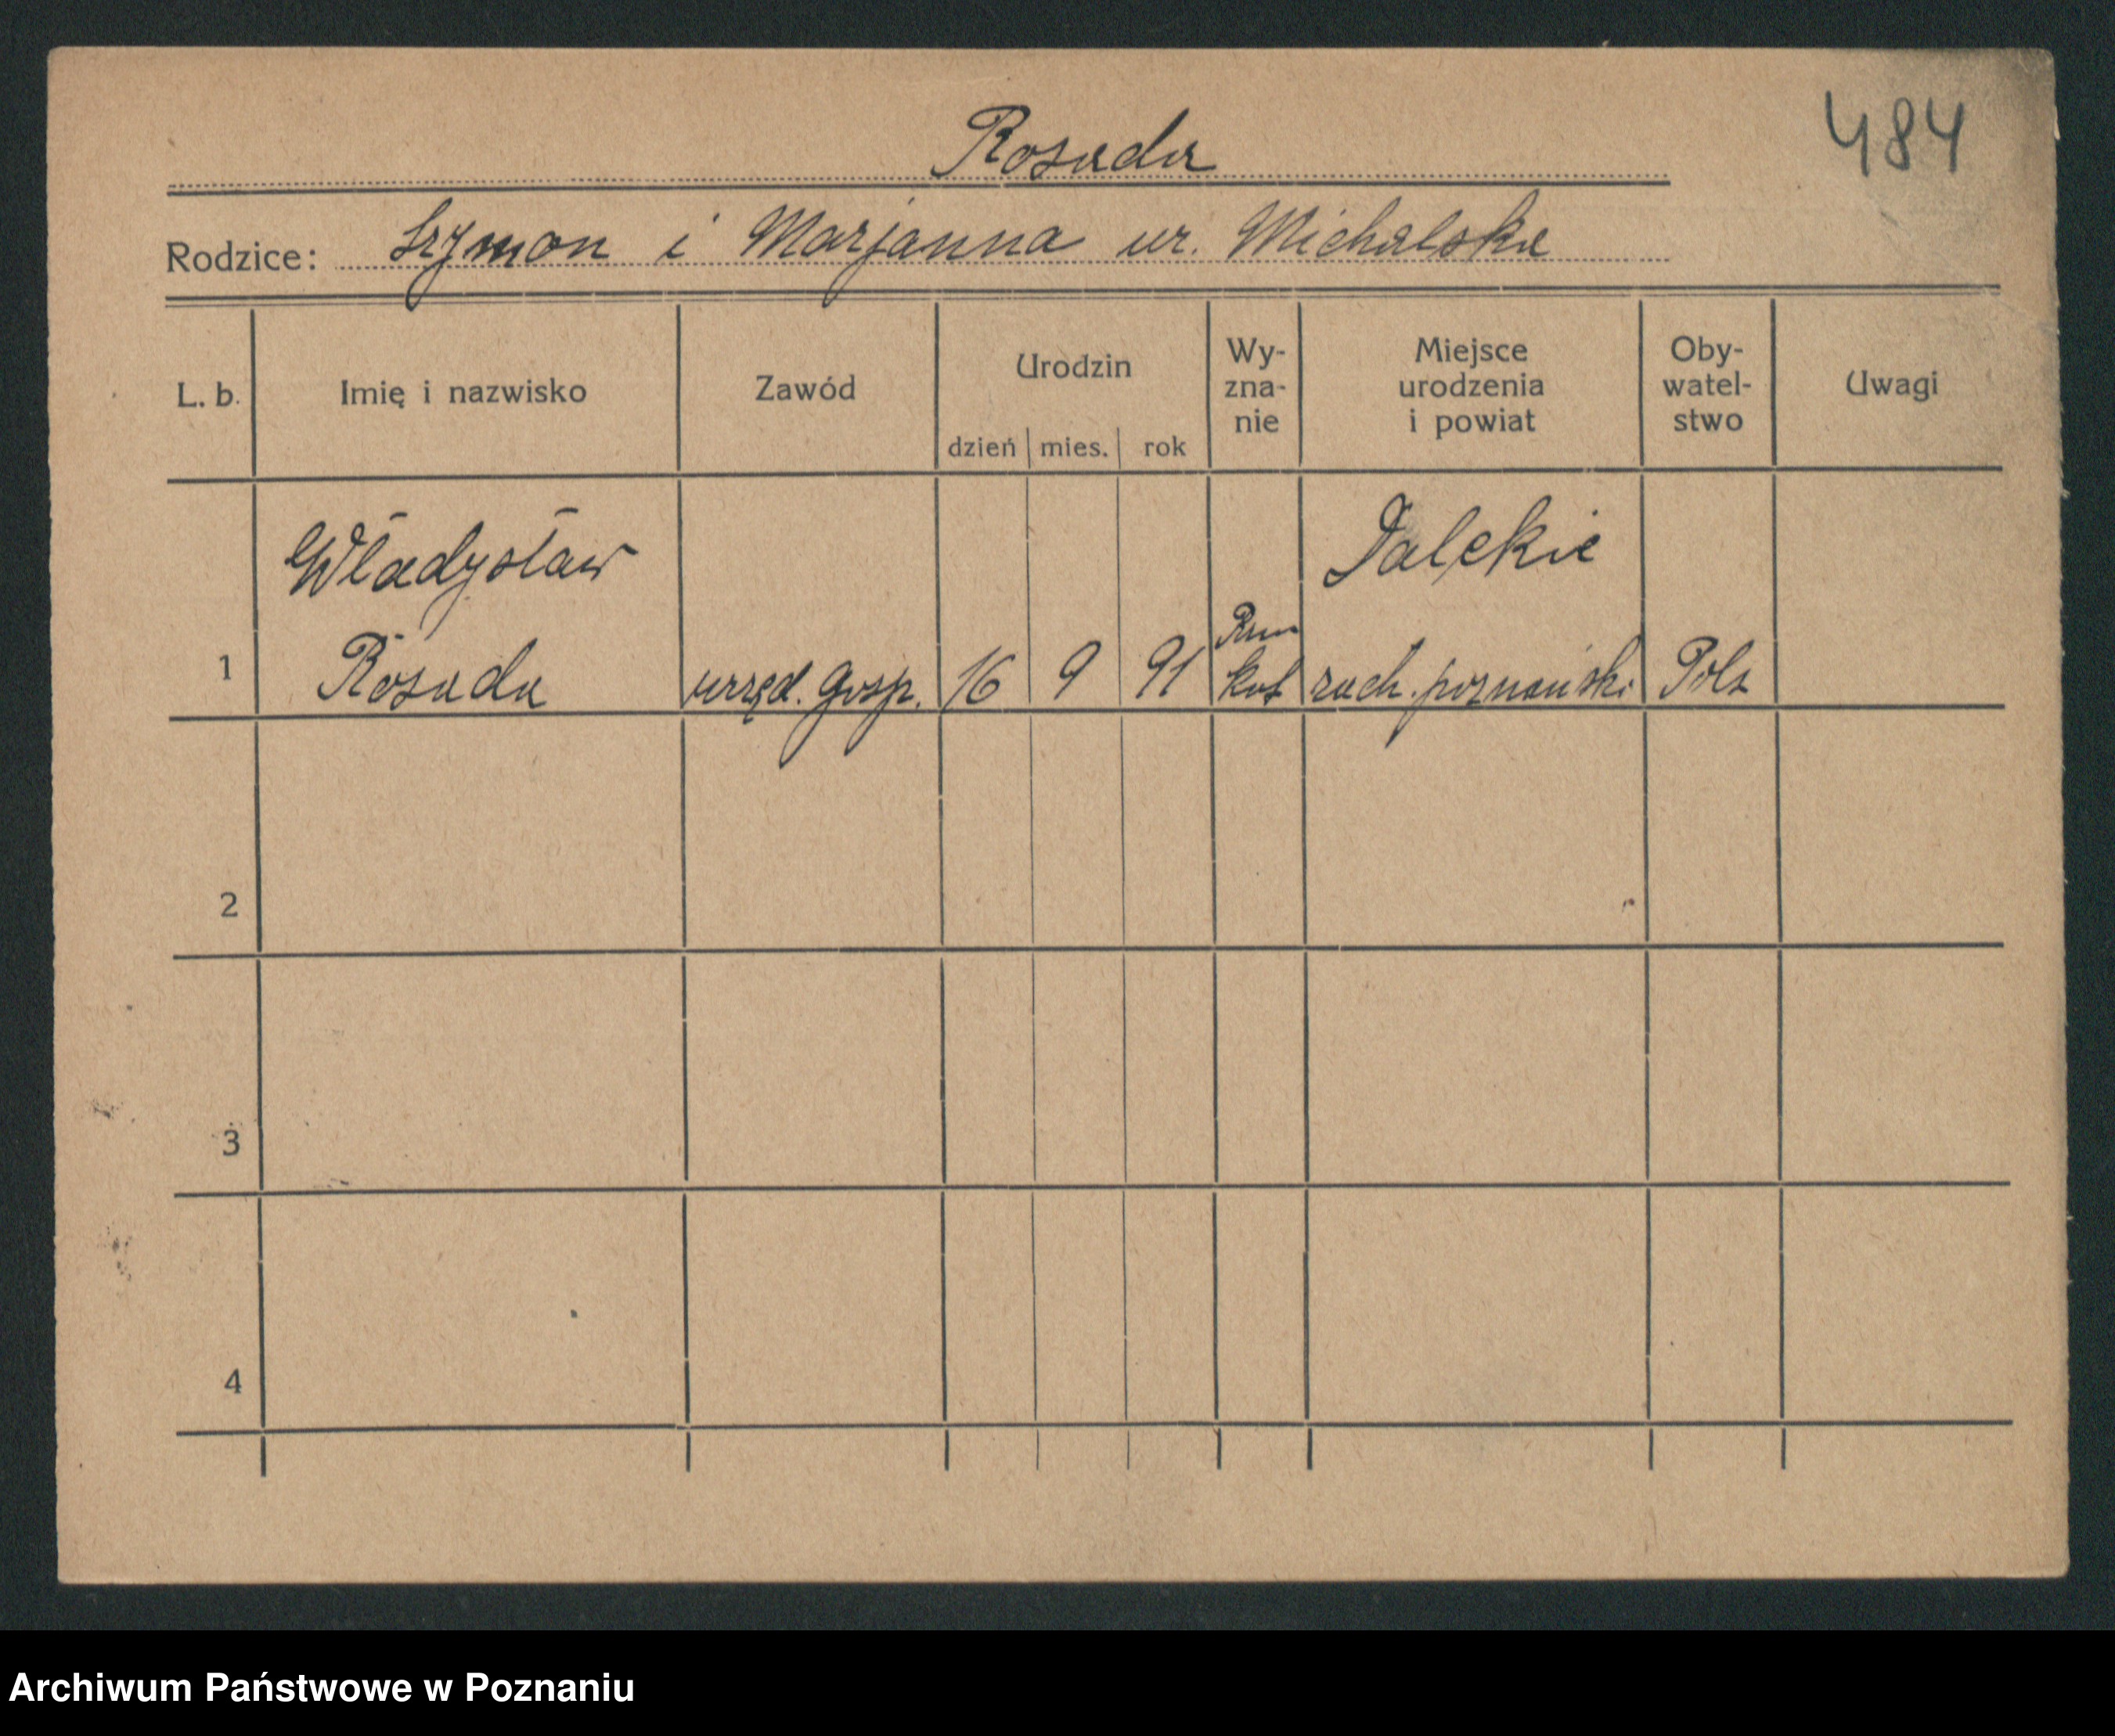 Rosada
484
Rodzice: Szymon i Marjanna ur. Michalska
L. b. Imię i nazwisko Zawód Urodzin dzień mies. rok Wy-zna-nie Miejsce urodzenia i powiat Oby-watel-stwo Uwagi
Władysław Dalekie
Rzm
1 Rosada urzęd. gosp. 16 9 91 kat zach. poznański Pols
2
3
4
Archiwum Państwowe w Poznaniu